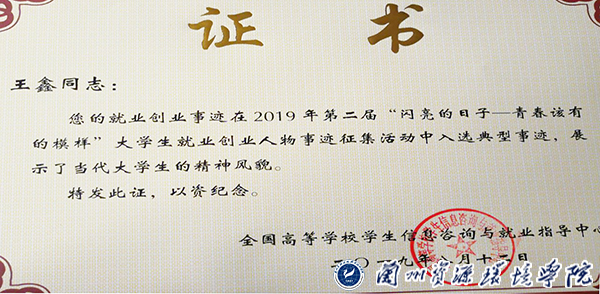 证书
王鑫同志：
您的就业创业事迹在2019年第二届“闪亮的日子—青春该有
的模样”大学生就业创业人物事迹征集活动中入选典型事迹，展
示了当代大学生的精神风貌。
特发此证，以资纪念。
全国高等学校学生信息咨询与就业指导中心
二〇一九年八月十二日
兰州资源环境学院